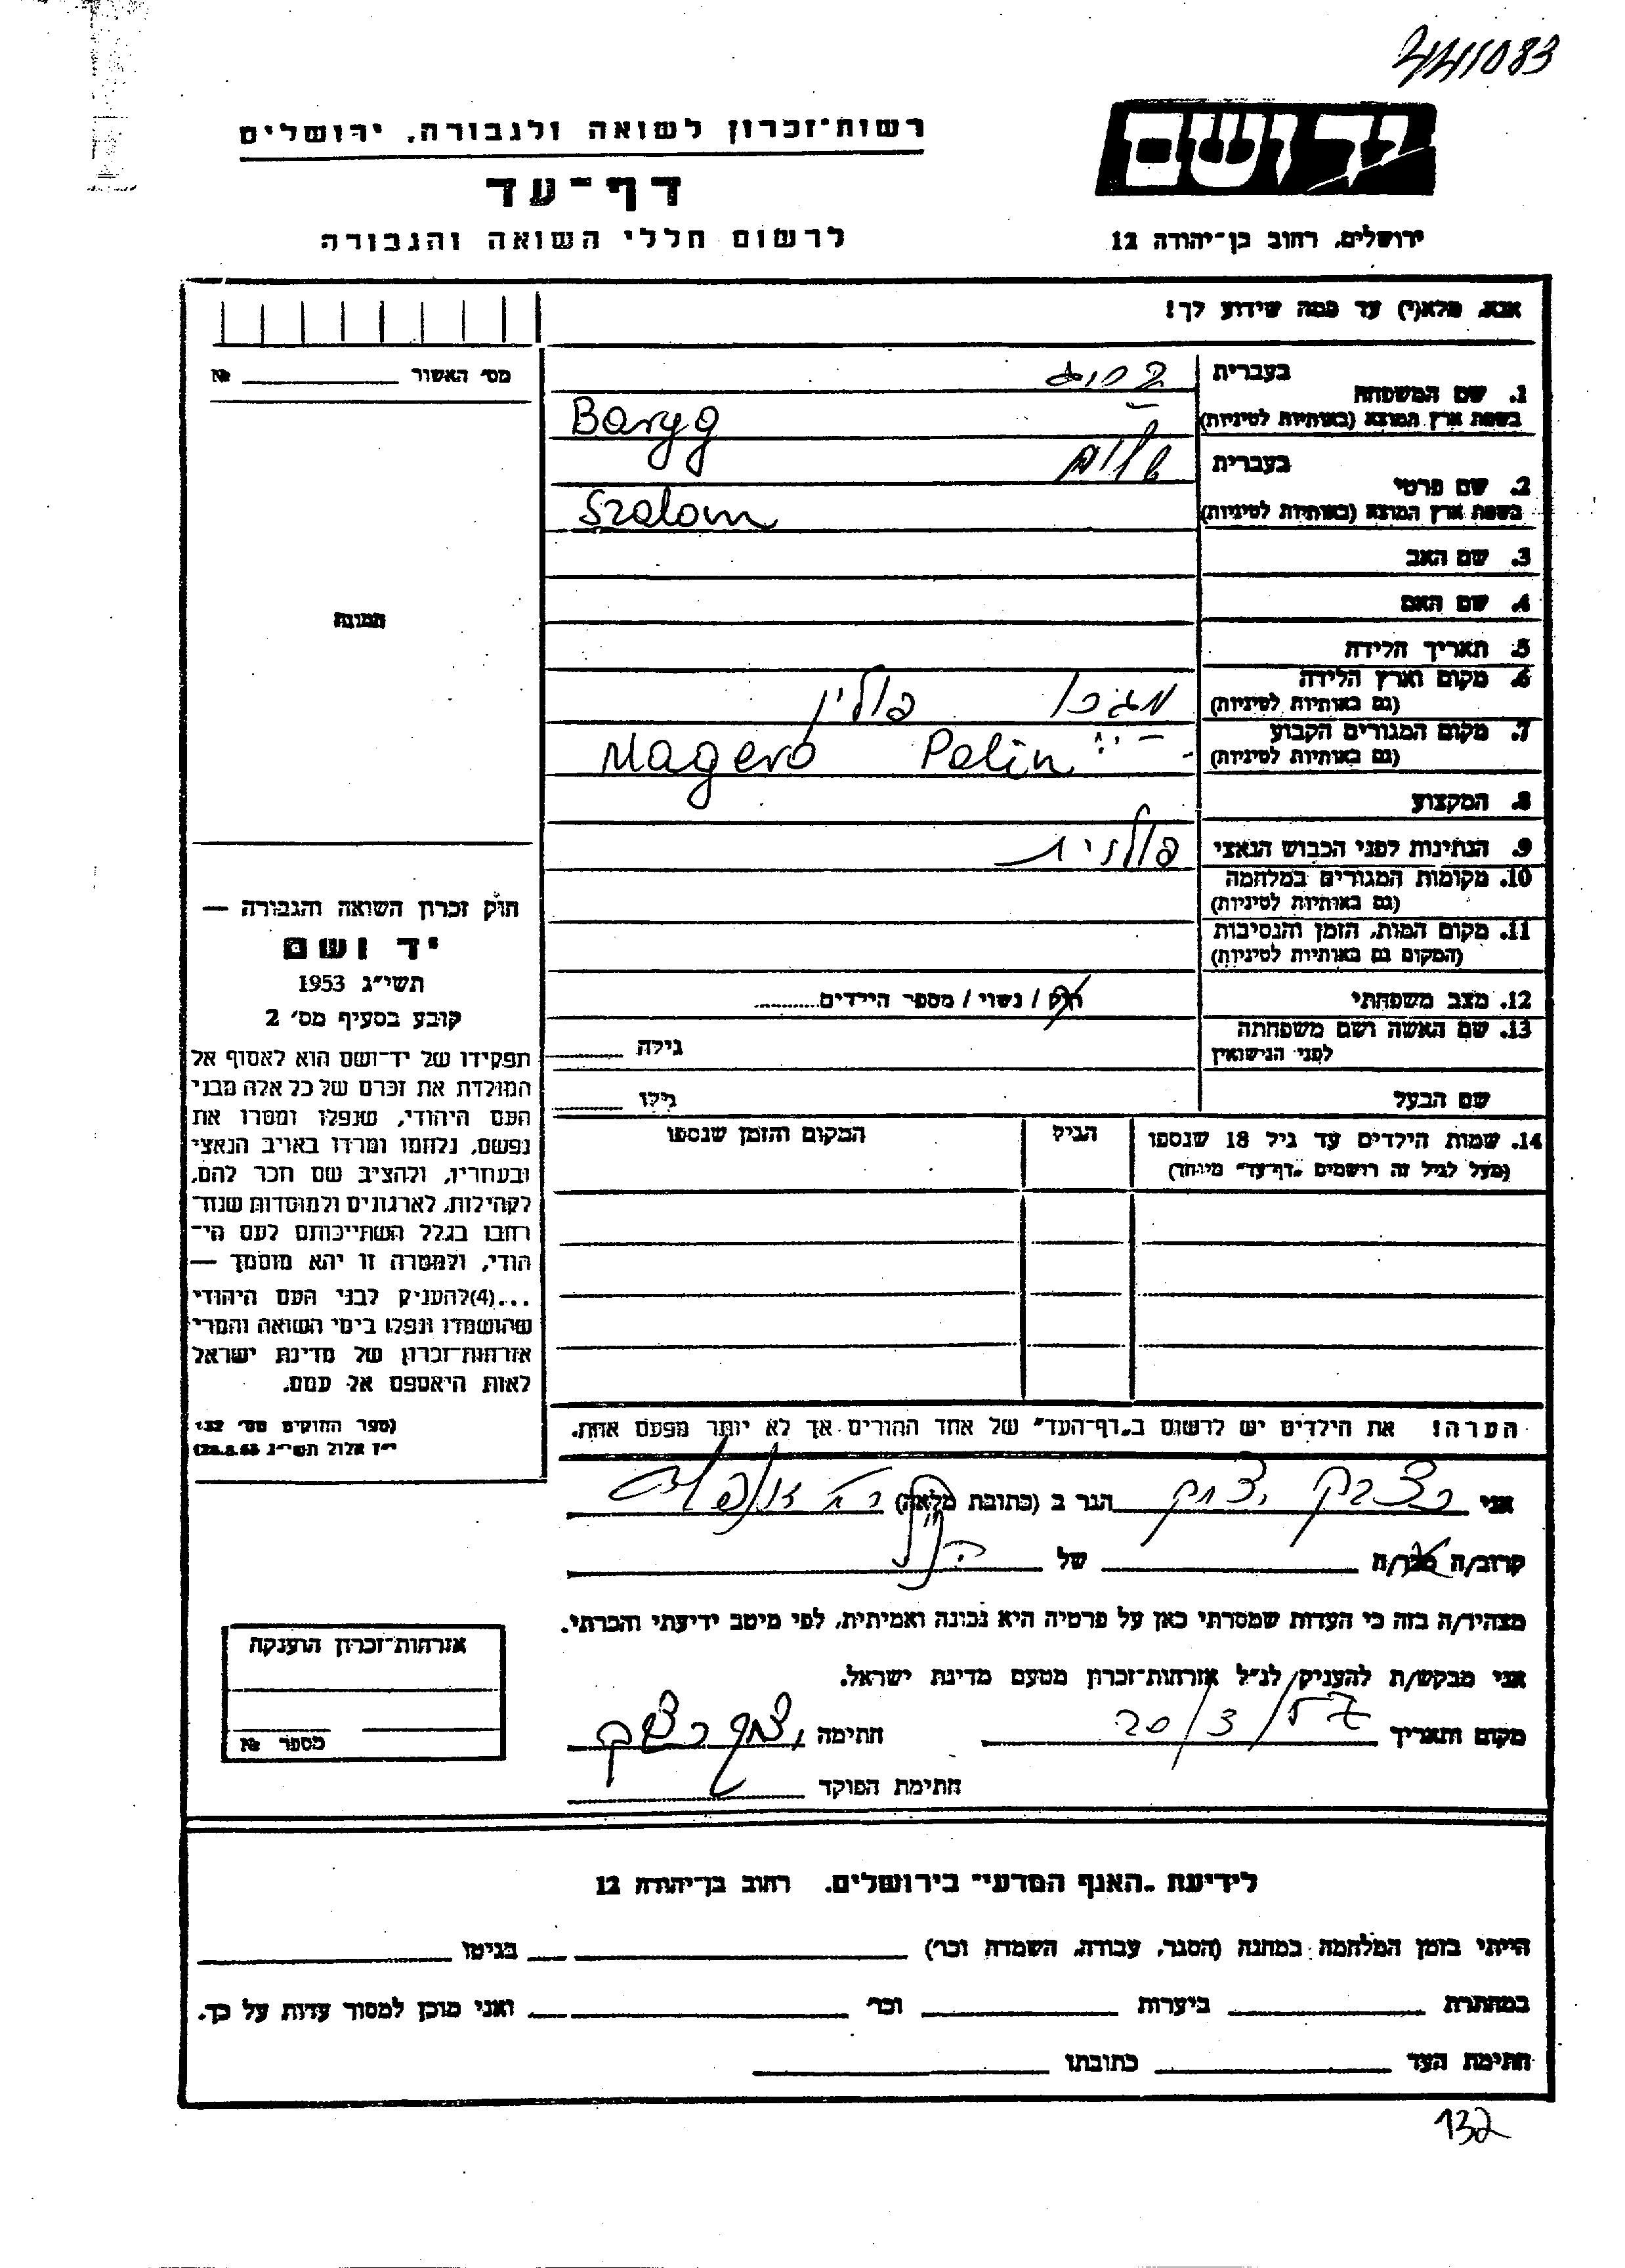 441083
רשות־זכרון לשואה ולגבורה, ירושלים
יד ושם
דף־עד
לרשום חללי השואה והגבורה
ירושלים, רחוב בן־יהודה 12
אנא, מלא(י) עד כמה שידוע לך!
מס׳ האשור №
בעברית
1. שם המשפחה
בשפת ארץ המוצא (באותיות לטיניות) Baryg
בעברית שלום
2. שם פרטי
בשפת ארץ המוצא (באותיות לטיניות) Szalom
3. שם האב
4. שם האם
תמונה
5. תאריך הלידה
6. מקום וארץ הלידה פולין
(גם באותיות לטיניות)
7. מקום המגורים הקבוע Magero Polin
(גם באותיות לטיניות)
8. המקצוע
9. הנתינות לפני הכבוש הנאצי פולנית
10. מקומות המגורים במלחמה
(גם באותיות לטיניות)
11. מקום המות, הזמן והנסיבות
(המקום גם באותיות לטיניות)
12. מצב משפחתי רוק / נשוי / מספר הילדים
13. שם האשה ושם משפחתה
לפני הנישואין גילה
שם הבעל גילו
14. שמות הילדים עד גיל 18 שנספו הגיל המקום והזמן שנספו
(מעל לגיל זה רושמים „דף־עד״ מיוחד)
חוק זכרון השואה והגבורה —
יד ושם
תשי״ג 1953
קובע בסעיף מס׳ 2
תפקידו של יד־ושם הוא לאסוף אל
המולדת את זכרם של כל אלה מבני
העם היהודי, שנפלו ומסרו את
נפשם, נלחמו ומרדו באויב הנאצי
ובעוזריו, ולהציב שם וזכר להם,
לקהילות, לארגונים ולמוסדות שנח־
רבו בגלל השתייכותם לעם הי־
הודי, ולמטרה זו יהא מוסמך —
...(4)להעניק לבני העם היהודי
שהושמדו ונפלו בימי השואה והמרי
אזרחות־זכרון של מדינת ישראל
לאות היאספם אל עמם.
(ספר החוקים מס׳ 132,
י״ז אלול תשי״ג 28.8.53)
הערה! את הילדים יש לרשום ב„דף־העד״ של אחד ההורים אך לא יותר מפעם אחת.
אני יצחק הגר ב (כתובת מלאה)
קרוב/ה מכר/ה של הנ״ל
מצהיר/ה בזה כי העדות שמסרתי כאן על פרטיה היא נכונה ואמיתית, לפי מיטב ידיעתי והכרתי.
אני מבקש/ת להעניק לנ״ל אזרחות־זכרון מטעם מדינת ישראל.
מקום ותאריך 20/3/57 חתימה
חתימת הפוקד
אזרחות־זכרון הוענקה
מספר №
לידיעת „האגף המדעי״ בירושלים. רחוב בן־יהודה 12
הייתי בזמן המלחמה במחנה (הסגר, עבודה, השמדה וכו׳) בגיטו
במחתרת ביערות וכו׳ ואני מוכן למסור עדות על כך.
חתימת העד כתובתו
132